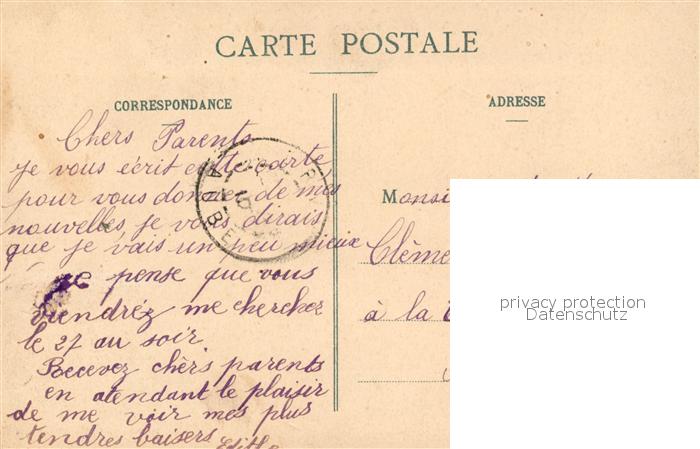 CARTE POSTALE
CORRESPONDANCE
ADRESSE
Chers Parents
Je vous écrit cette carte
pour vous donner de mes
nouvelles je vous dirais
que je vais un peu mieux
je pense que vous
viendréz me chercher
le 27 au soir.
Recevez chèrs parents
en atendant le plaisir
de me voir mes plus
tendres baisers
Edith
AUBE
Monsi
Cléme
à la
privacy protection
Datenschutz